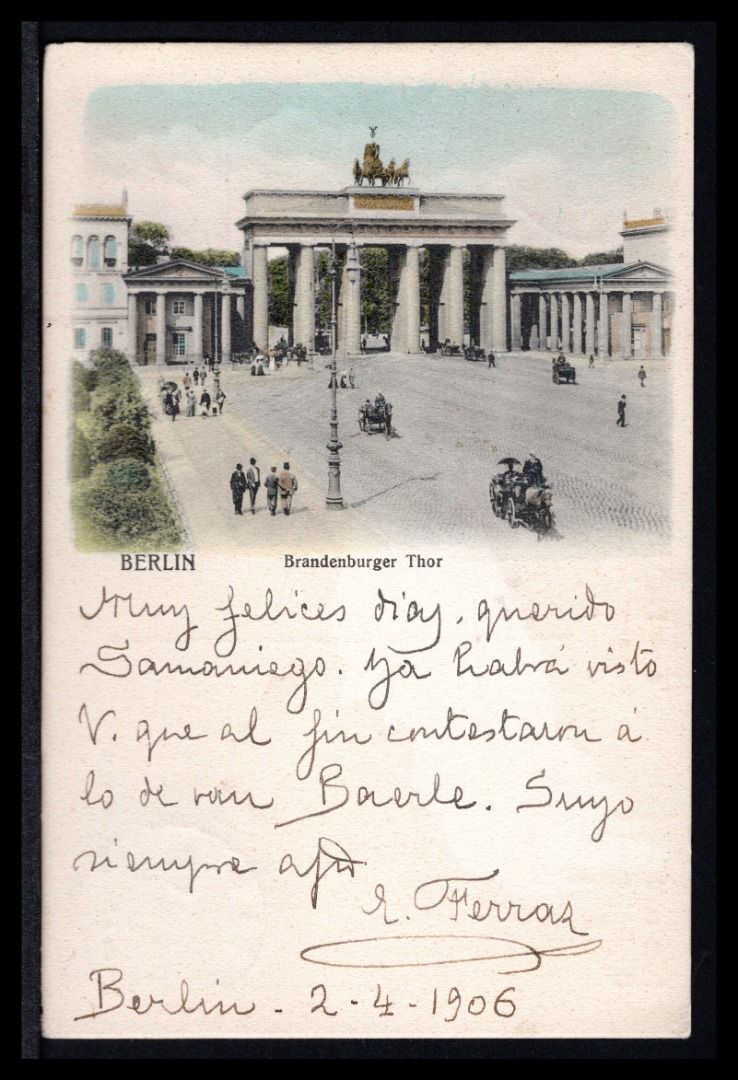 BERLIN Brandenburger Thor
Muy felices días, querido
Samaniego. Ya habrá visto
V. que al fin contestaron á
lo de van Baerle. Suyo
siempre afmo
E. Ferraz
Berlin - 2 - 4 - 1906